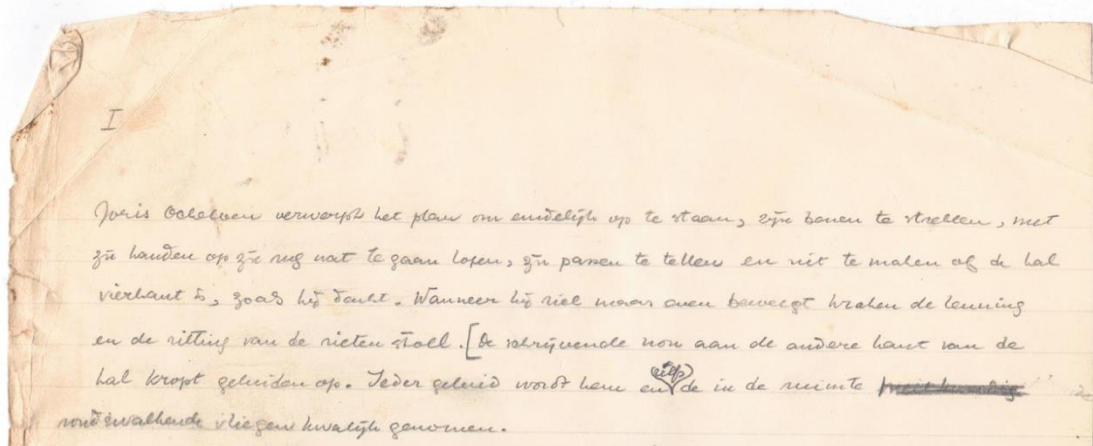 I
Joris Ockeloen verwerpt het plan om eindelijk op te staan, zijn benen te strekken, met
zijn handen op zijn rug wat te gaan lopen, zijn passen te tellen en uit te maken of de hal
vierkant is, zoals hij dacht. Wanneer hij zich maar even beweegt kraken de leuning
en de zitting van de rieten stoel. [De schrijvende non aan de andere kant van de
hal kropt geluiden op. Ieder geluid wordt hem en de in de ruimte
rondzwalkende vliegen kwalijk genomen.